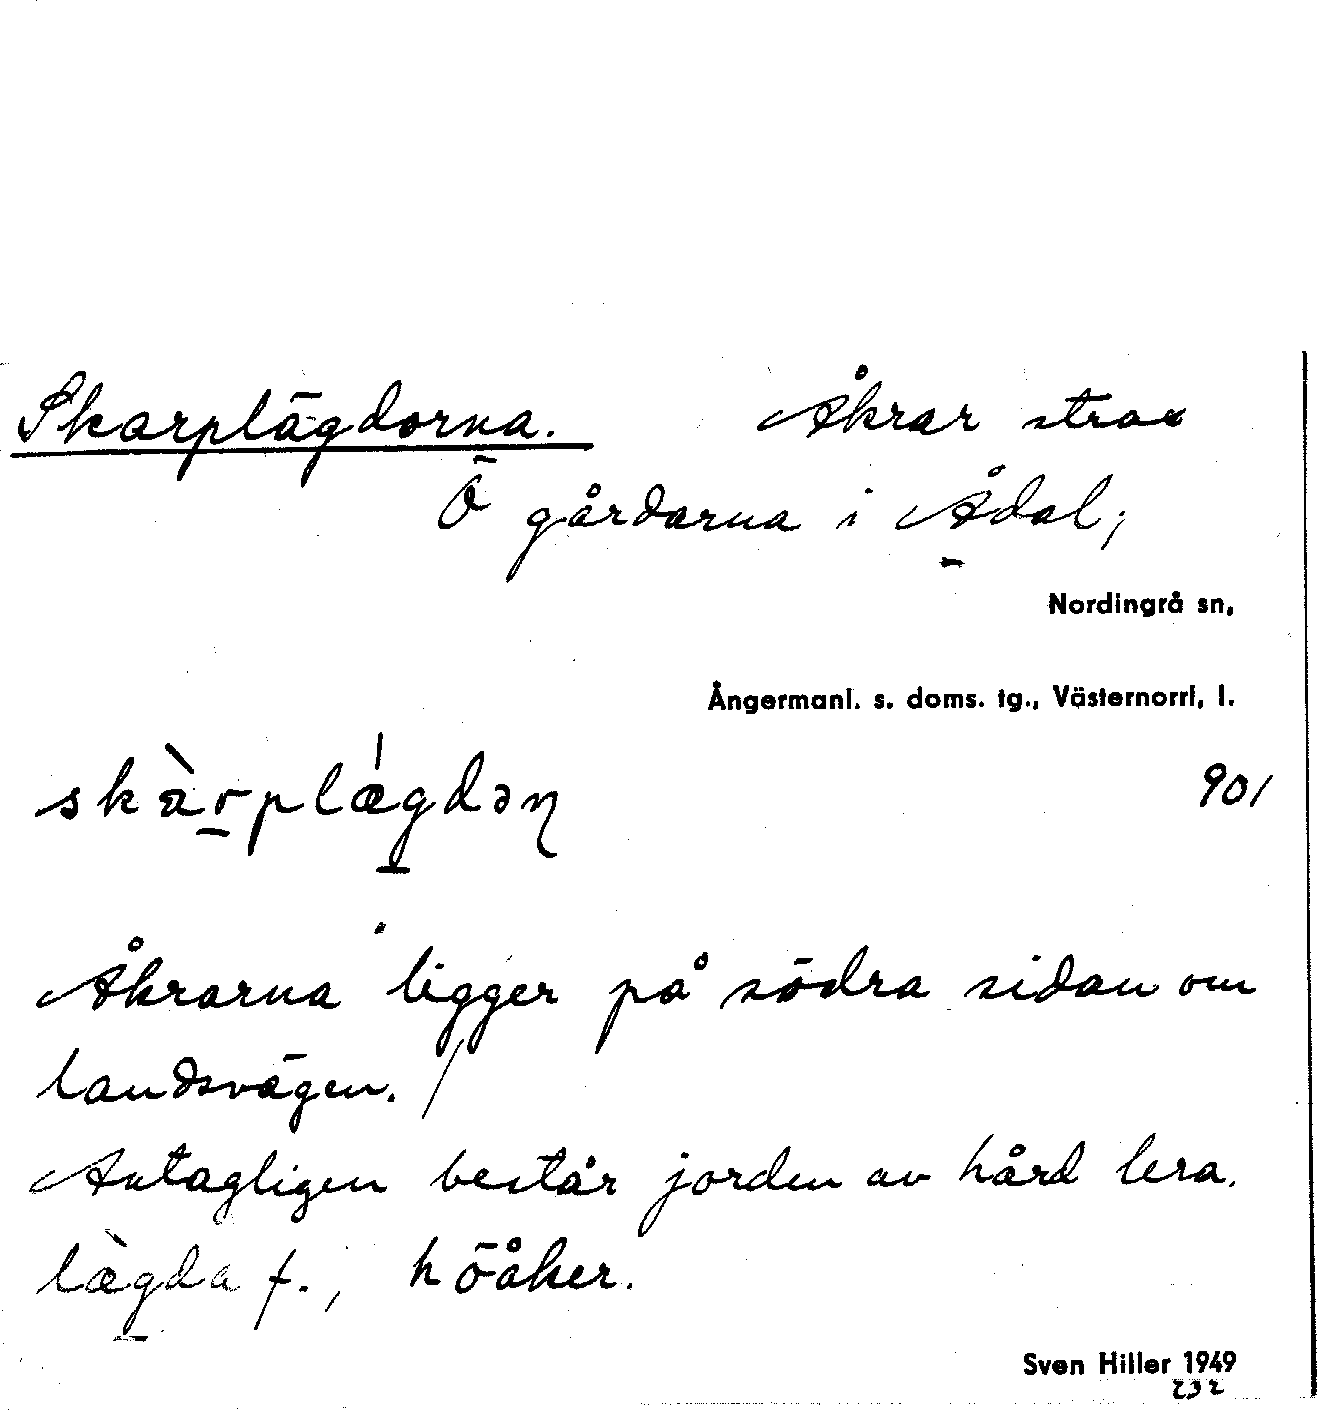 Skarplägdorna. Åkrar strax
Ö gårdarna i Ådal;
Nordingrå sn,
Ångermanl. s. doms. tg., Västernorrl. l.
skàrplǽgdəɳ 901
Åkrarna ligger på södra sidan om
landsvägen. /
Antagligen består jorden av hård lera.
læ̀gda f., höåker.
Sven Hiller 1949
232